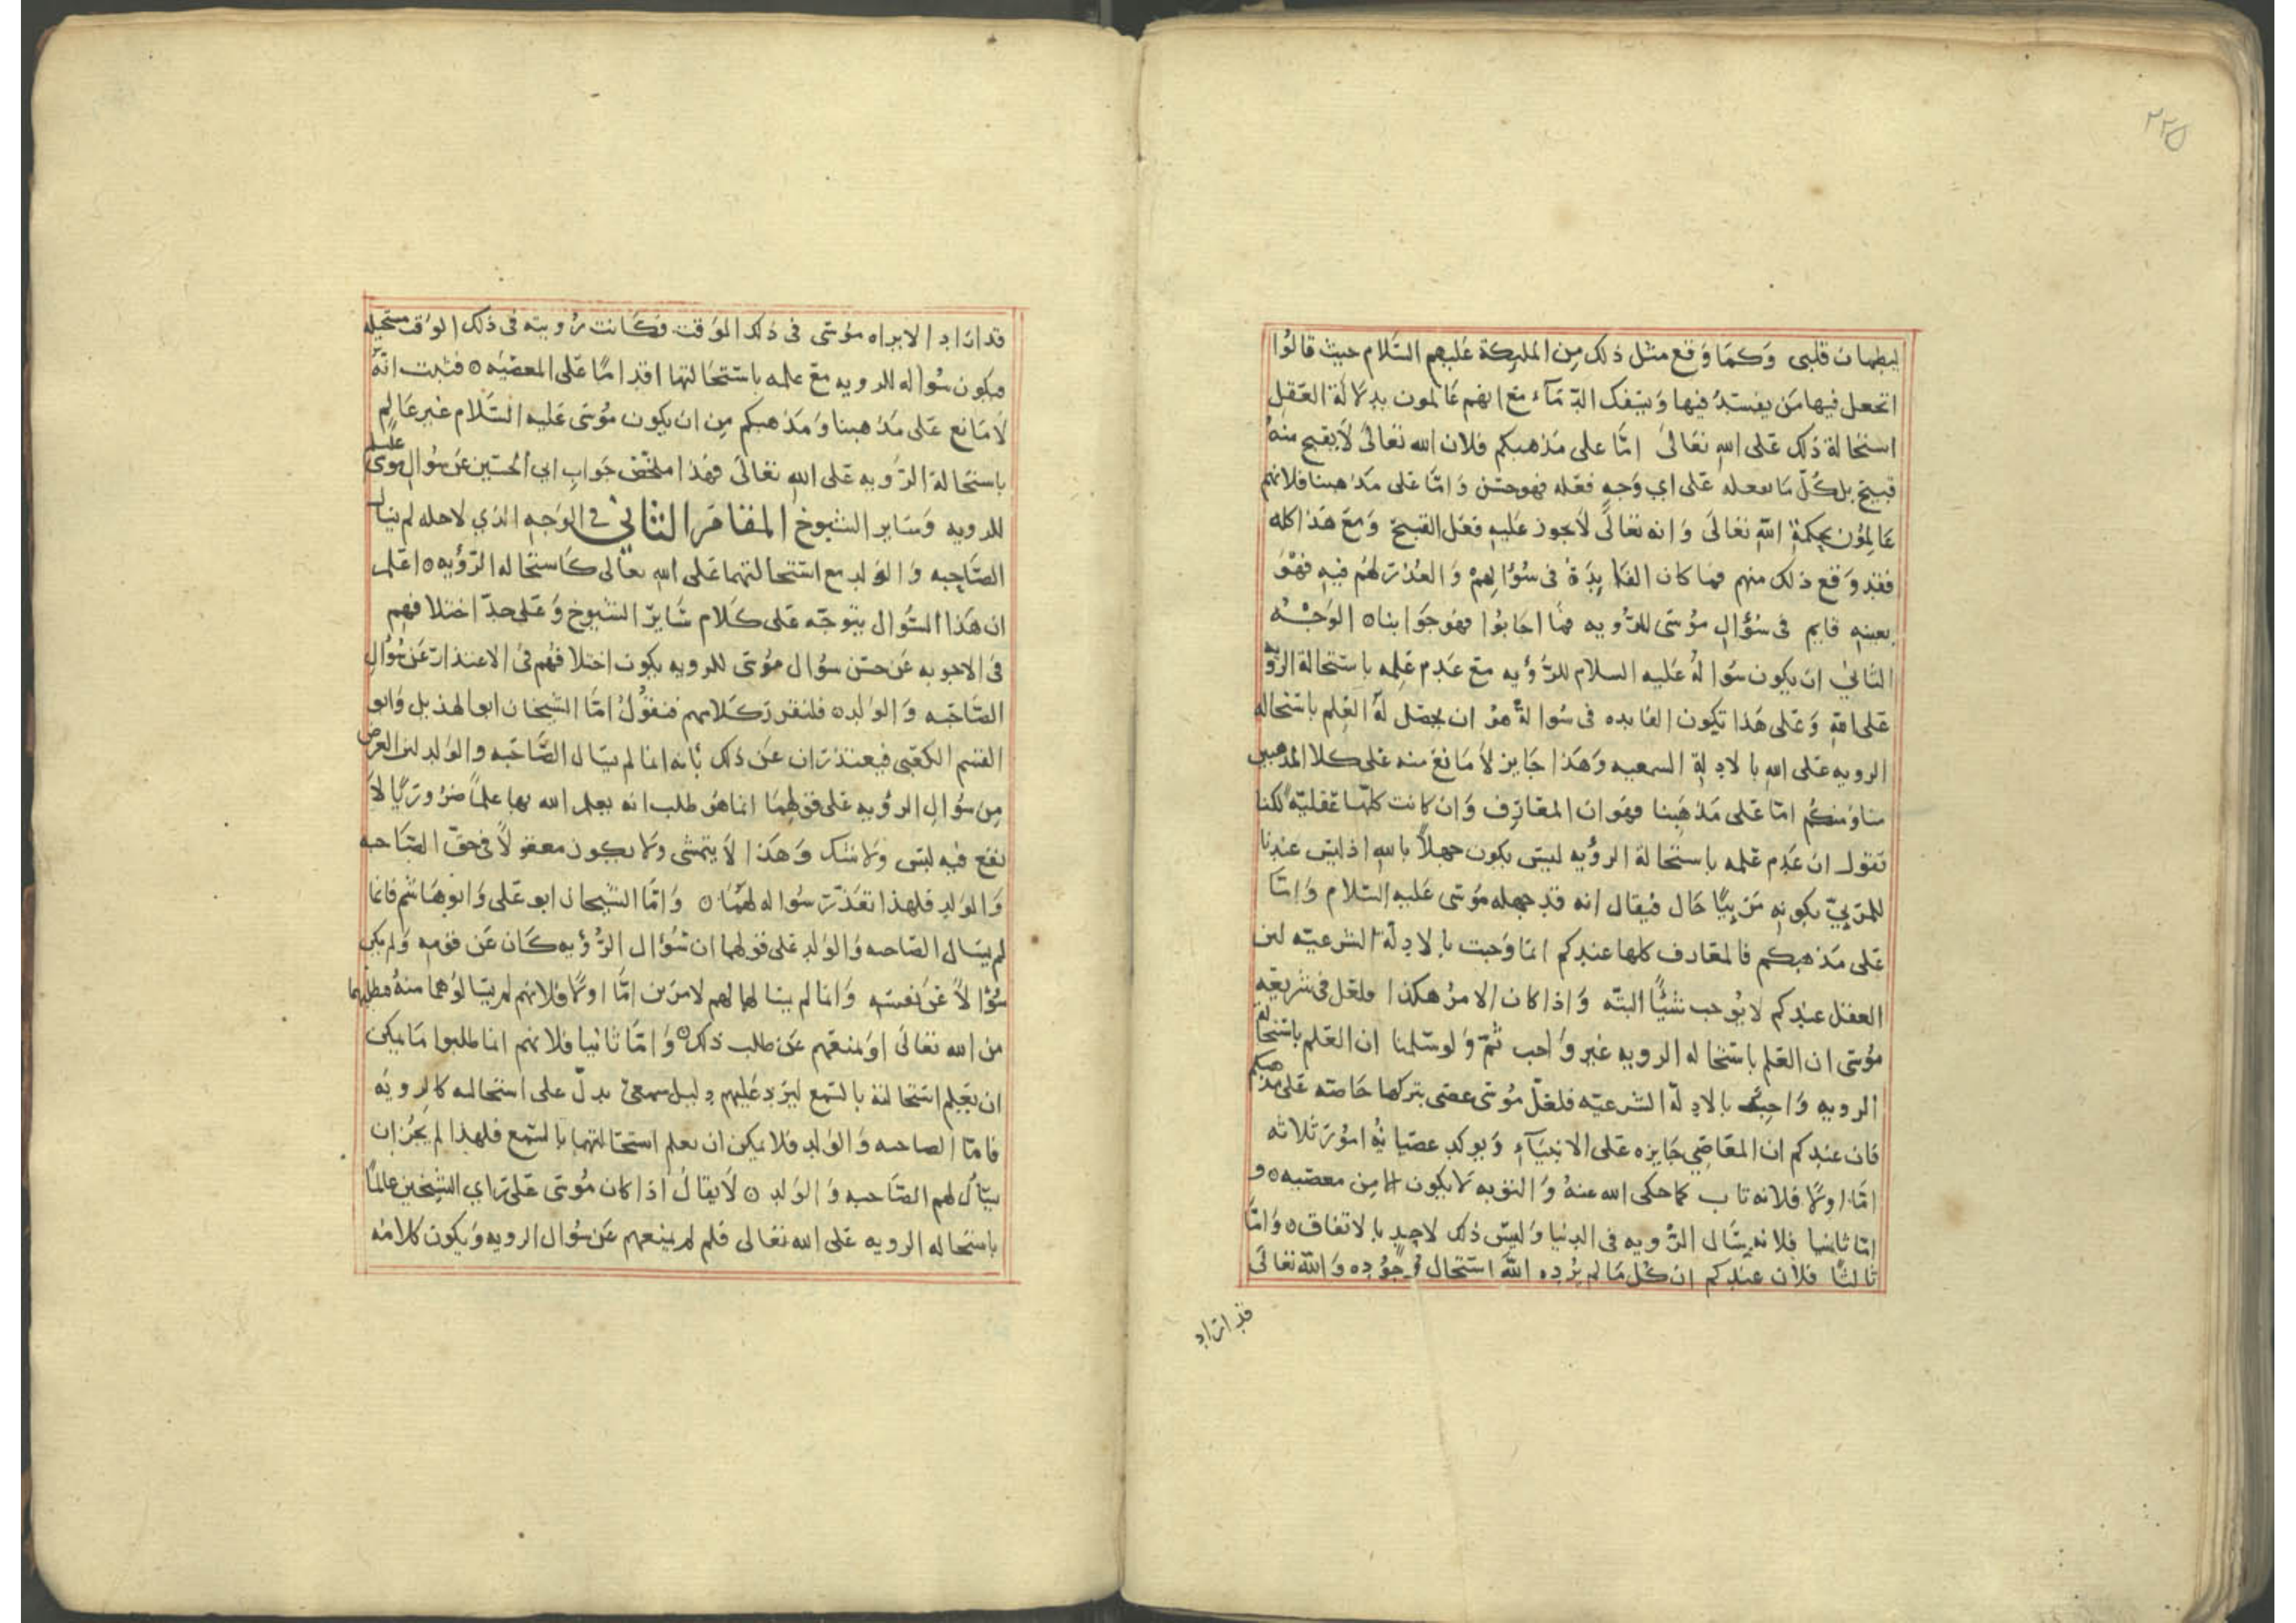 ٢٢٥
ليطمان قلبى وَكمَا وَقع مثل ذلك مِن المليكة عَليهم السَّلام حيث قالوُا
اتجعل فيها مَن يفسِدُ فيها وَيسفك الدّمَآء مَع انهم عَالمون بدلالة العَقل
استحَالة ذلك عَلى اللهِ تعَالىَ امّا على مَذهبكم فلان الله تعَالىَ لاَيقبح منهُ
قبيح بل كُلّ مَا يفعله عَلى اي وَجهٍ فعَله فهو حسَن وَامّا عَلى مَذهبنا فلانهم
عَالِمُون بحكمةِ اللهِ تعَالىَ وَانه تعَالىَ لاَيجوز عَليهِ فعَل القبيح وَمعَ هَذا كله
فقد وَقع ذلك منهم فمَا كان الفَايِدَةُ فى سُؤالِهمْ وَالعُذرَ لهُم فيهِ فهُوَ
بعينهِ قايم فى سُؤالِ مُوسَى للرُّويه فمَا اجَابُوا فهوَجَوابنا ه الوَجْهُ
الثاني ان يكون سُوالهُ عَليه السلام للرُّؤيه مَع عَدم عَلمِه باستحالة الرُّويه
عَلى اللهِ وَعَلى هَذا تكون الفايده فى سُوالهُ هوُ ان يحصُل لهُ العِلم باستحاله
الرويه عَلى اللهِ بالادلةِ السمعيه وَهَذا جَايز لاَ مَانعَ منه عَلى كلا المذهبين
منا وَمنكُم امّا عَلى مَذهَبِنا فهوَ ان المعَارِف وَان كانت كلهّا عَقليّه لكنا
نقول ان عَدم عَلمه باستحالة الرؤيه ليسَ يكون جهلاً باللهِ اذ ليسَ عندنا
للمَرئِيّ بكونهِ مَرِييًّا حَال فيقال انه قد جهله مُوسَى عَليه السَّلام وَامّا
عَلى مَذهبكم فالمعَارف كلها عندكم انما وَجبت بالادلّة الشرعيّه لان
العقل عندكم لايُوجب شيًّا البتّه وَاذا كان الامرُ هكذا فلعَل فى شريعَةِ
مُوسَى ان العَلم باستحاله الرويه غير وَاجب ثمّ وَلو سَلمنا ان العَلم باستحالة
الرويه وَاجِبٌ بالادلّة الشرعيّه فلعَلّ مُوسَى عصَى بتركها خاصّه عَلى مذهبكم
فان عندكم ان المعَاصِي جَايزه عَلى الانبيَآءِ وَيوكد عصيَانهُ امُورَ ثلاثه
امّا اولاً فلانه تاب كما حكى الله عنهُ وَالتوبه لايكون الا مِن معصيه ه و
امّا ثانيا فلانه سَال الرُّويه فى الدنيا وَليسَ ذلك لاحِدٍ بالاتفاق ه وَامّا
ثالثًا فلان عندكم ان كُل مَا لم يُرده اللهُ استحَال وجُوده وَاللهُ تعَالىَ
قد اراد
قد ارَاد الايراه مُوسَى فى ذلك الوَقت فكَانت رُويته فى ذلك الوَقت مستحيله
فيكون سُواله للرويه مَع علمه باستحَالتها اقدَامًا عَلى المعصيَه ه فثبت انّهُ
لاَمَانع عَلى مَذهبنا وَمَذهبكم مِن ان يكون مُوسَى عَليه السَّلام غير عَالِمٍ
باستحَالة الرُّويه عَلى اللهِ تعَالىَ فهَذا ملخّص جَوابِ ابى الحسَين عَن سُوالِ مُوسَى عليلم
للرويه وَسَاير الشيوخ المقامُ الثاني فى الوَجهِ الذي لاجله لم يسَال
الصَّاحِبه وَالوَلد مع استحالتهما عَلى اللهِ تعالى كاَستحاله الرّؤيه ه اعَلم
ان هَذا السُّوال يتوجّه عَلى كَلام سَايرّ الشيوخ وَعَلى حدّ اختلافهم
فى الاجوبه عَن حسن سُوال مُوسَى للرويه يكون اختلافهُم فى الاعتذار عَن سُوالِ
الصَّاحَبه وَالوَلد ه فلنقرر كَلامهم فنقُولُ امَّا الشيخان ابو الهذيل وَابو
القسم الكعَبى فيعتذرَان عَن ذلك بأنه انما لم يسَال الصَّاحَبه والوَلد لان الغرَض
مِن سُوالِ الرؤيه عَلى قولهمَا انما هوَ طلب انه يعلم الله بها علماً ضرُورَيًا لاَ
يقع فيه لبس وَلاشك وَهَذا لاَيتمشى وَلايكون معقولاً فى حقّ الصَّاحبه
وَالوَلدِ فلهذا تعَذّر سُواله لهُمَا ه وَامّا الشيخان ابو عَلى وَابو هَاشم فانما
لم يسَال الصَّاحبه وَالوَلد عَلى قولهما ان سُؤال الرُّؤيه كَان عَن قومِه وَلم يكن
سُؤالاً عَن نفسهِ وَانما لم يسَالهالهم لامرَين امَّا اولاً فلانهم لم يسَالوُهما منهُ فطلبهما
من الله تعَالىَ اوَ لمنعَهم عَن طلب ذلك ه وَامّا ثانيا فلانهم انما طلبوا مَا يمكن
ان يعَلم استحَالته بالسَّمع ليرد عَليهم دليل سمعىّ يدلّ على استحالته كالرويَه
فامّا الصاحبه وَالوَلد فلا يمكن ان يعلم استحَالتهما بالسَّمع فلهذا لم يجُز ان
يسَالُ لهم الصَّاحبه وَالوَلد ه لاَيقالُ اذا كان مُوسَى عَلى رَاي الشيخين عالماً
باستحَاله الرويه عَلى الله تعَالى فلم لم يمنعهم عَن سُوال الرويه وَيكون كلامُه